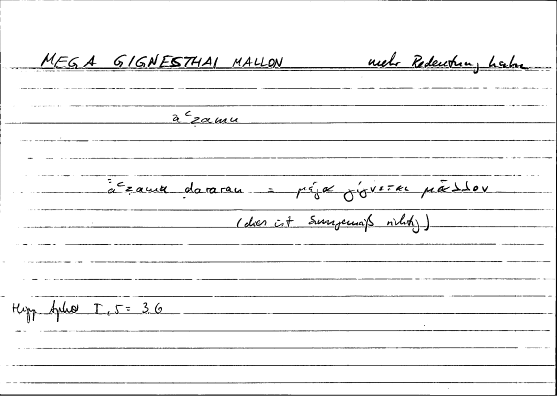 MEGA GIGNESTHAI MALLON mehr Bedeutung haben
aʿẓamu
aʿẓamu ḍararan = μέγα γίγνεται μᾶλλον
(dies ist sinngemäß richtig)
Hipp Apho I, 5 = 3 6